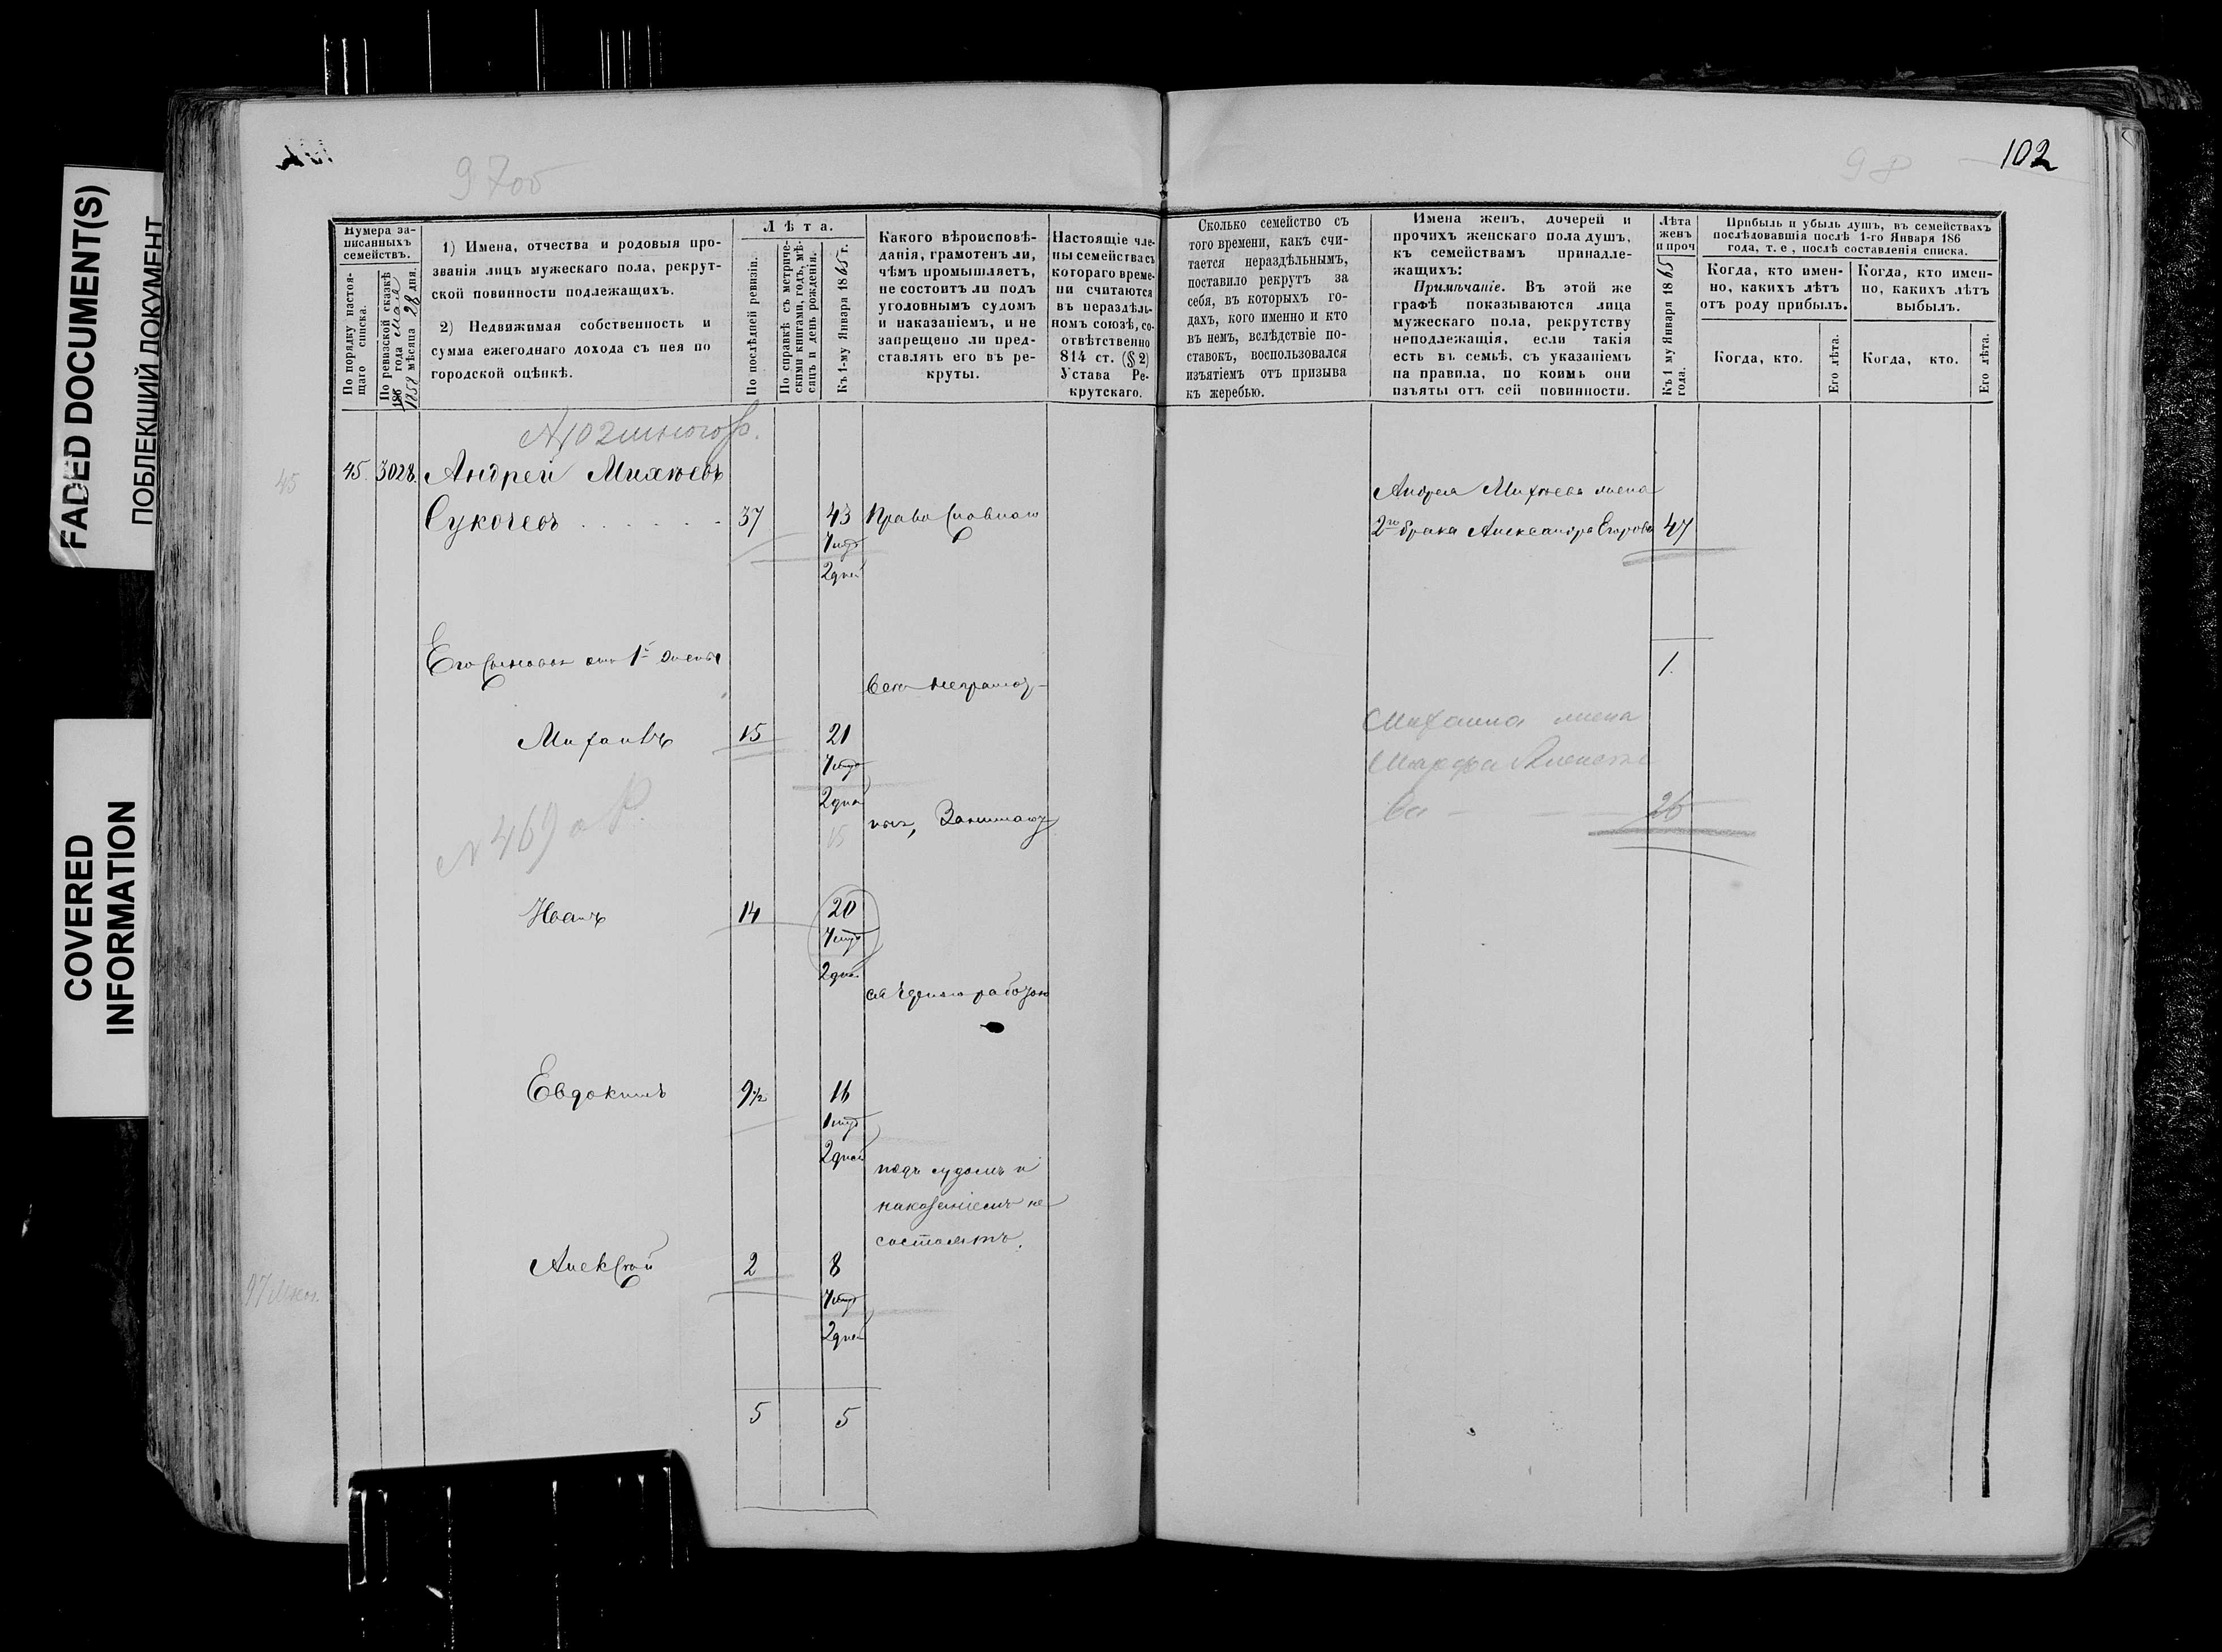 FADED DOCUMENT(S)
ПОБЛЕКШИЙ ДОКУМЕНТ
COVERED
INFORMATION
98
102
Нумера за-
писанныхъ
семействъ.
По порядку настоя-
щаго списка.
По ревизской сказкѣ
186 года мая
1858 мѣсяца 28 дня.
1) Имена, отчества и родовыя про-
званія лицъ мужескаго пола, рекрут-
ской повинности подлежащихъ.
2) Недвижимая собственность и
сумма ежегоднаго дохода съ нея по
городской оцѣнкѣ.
Лѣта.
По послѣдней ревизіи.
По справкѣ съ метриче-
скими книгами, годъ, мѣ-
сяцъ и день рожденія.
Къ 1-му Января 1865 г.
Какого вѣроисповѣ-
данія, грамотенъ ли,
чѣмъ промышляетъ,
не состоитъ ли подъ
уголовнымъ судомъ
и наказаніемъ, и не
запрещено ли пред-
ставлять его въ ре-
круты.
Настоящіе чле-
ны семейства съ
котораго време-
ни считаются
въ нераздѣль-
номъ союзѣ, со-
отвѣтственно
814 ст. (§ 2)
Устава Ре-
крутскаго.
Сколько семейство съ
того времени, какъ счи-
тается нераздѣльнымъ,
поставило рекрутъ за
себя, въ которыхъ го-
дахъ, кого именно и кто
въ немъ, вслѣдствіе по-
ставокъ, воспользовался
изъятіемъ отъ призыва
къ жеребью.
Имена женъ, дочерей и
прочихъ женскаго пола душъ,
къ семействамъ принадле-
жащихъ:
Примѣчаніе. Въ этой же
графѣ показываются лица
мужескаго пола, рекрутству
неподлежащія, если такія
есть въ семьѣ, съ указаніемъ
на правила, по коимъ они
изъяты отъ сей повинности.
Лѣта
женъ
и проч
Къ 1 му Января 1865
года.
Прибыль и убыль душъ, въ семействахъ
послѣдовавшія послѣ 1-го Января 186
года, т. е, послѣ составленія списка.
Когда, кто имен-
но, какихъ лѣтъ
отъ роду прибылъ.
Когда, кто имен-
но, какихъ лѣтъ
выбылъ.
Когда, кто.
Его лѣта.
Когда, кто.
Его лѣта.
45
45. 3028. Андрей Михѣевъ
Сукочевъ 37 43 Православнаго
7 мѣ
2 дней
Андрея Михѣева жена
2го брака Александра Егорова 47
Его сыновья отъ 1й жены
1.
Всѣ неграмот-
Михаилъ 15 21
7 мѣ
2 дней
Михаила жена
Марфа
ва 26
ные, Занимают
№ 469
Иванъ 14 20
7 мѣ
2 дней
работою
Евдокимъ 9½ 16
1 мѣ
2 дней
подъ судомъ и
наказаніемъ не
состоятъ.
Алексѣй 2 8
7 мѣ
2 дней
5 5